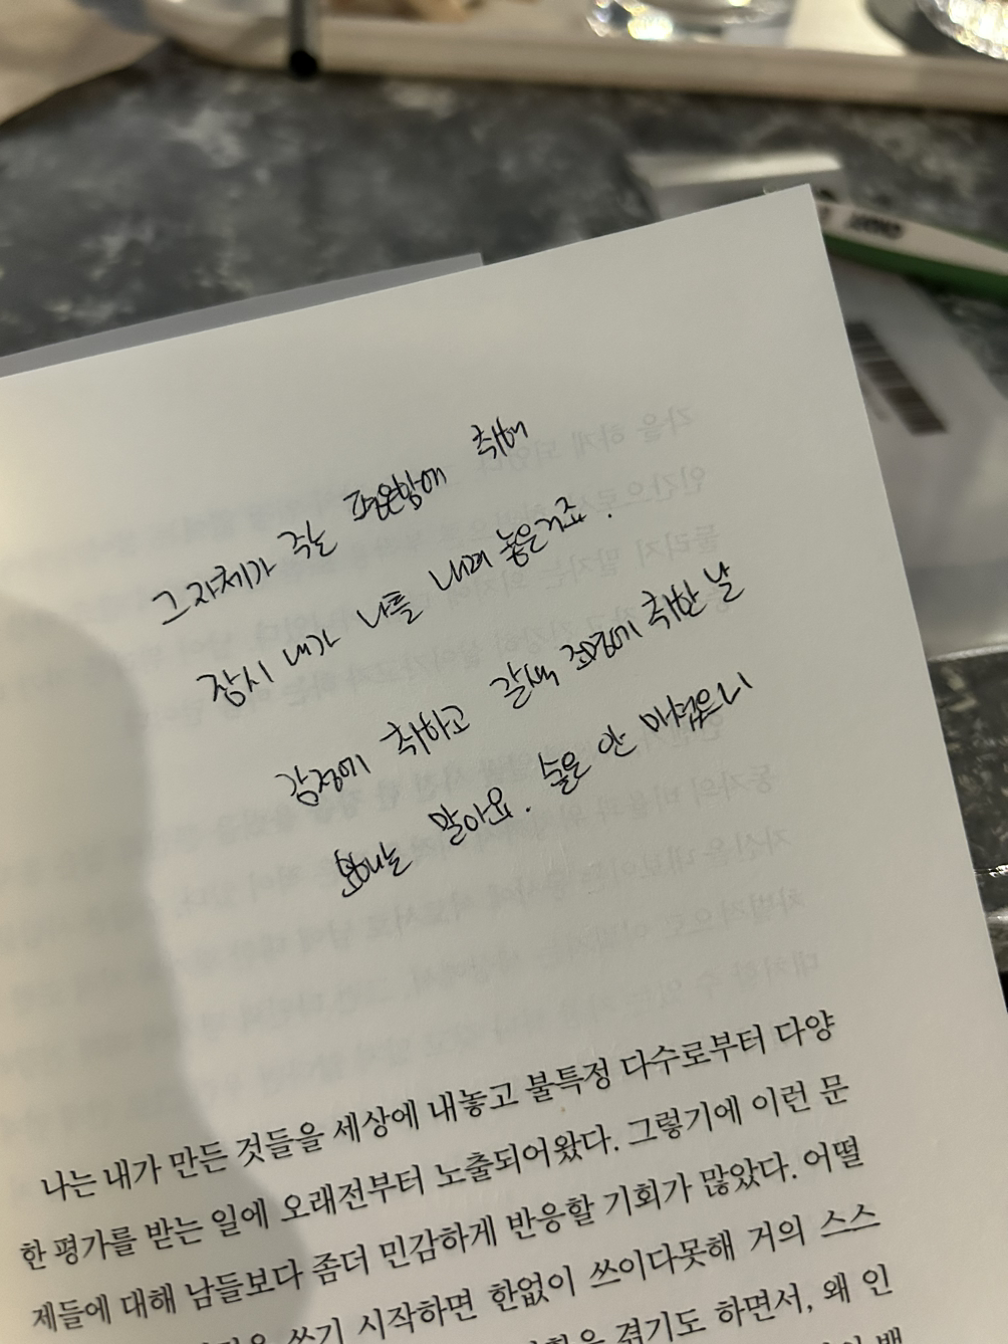 그 자체가 주는 편안함에 취해
잠시 내가 나를 내려 놓은거죠.
감정에 취하고 갈색 조명에 취한 날
보내는 말아요. 술은 안 마셨으니
나는 내가 만든 것들을 세상에 내놓고 불특정 다수로부터 다양
한 평가를 받는 일에 오래전부터 노출되어왔다. 그렇기에 이런 문
제들에 대해 남들보다 좀더 민감하게 반응할 기회가 많았다. 어떨
쓰기 시작하면 한없이 쓰이다못해 거의 스스
겪기도 하면서, 왜 인